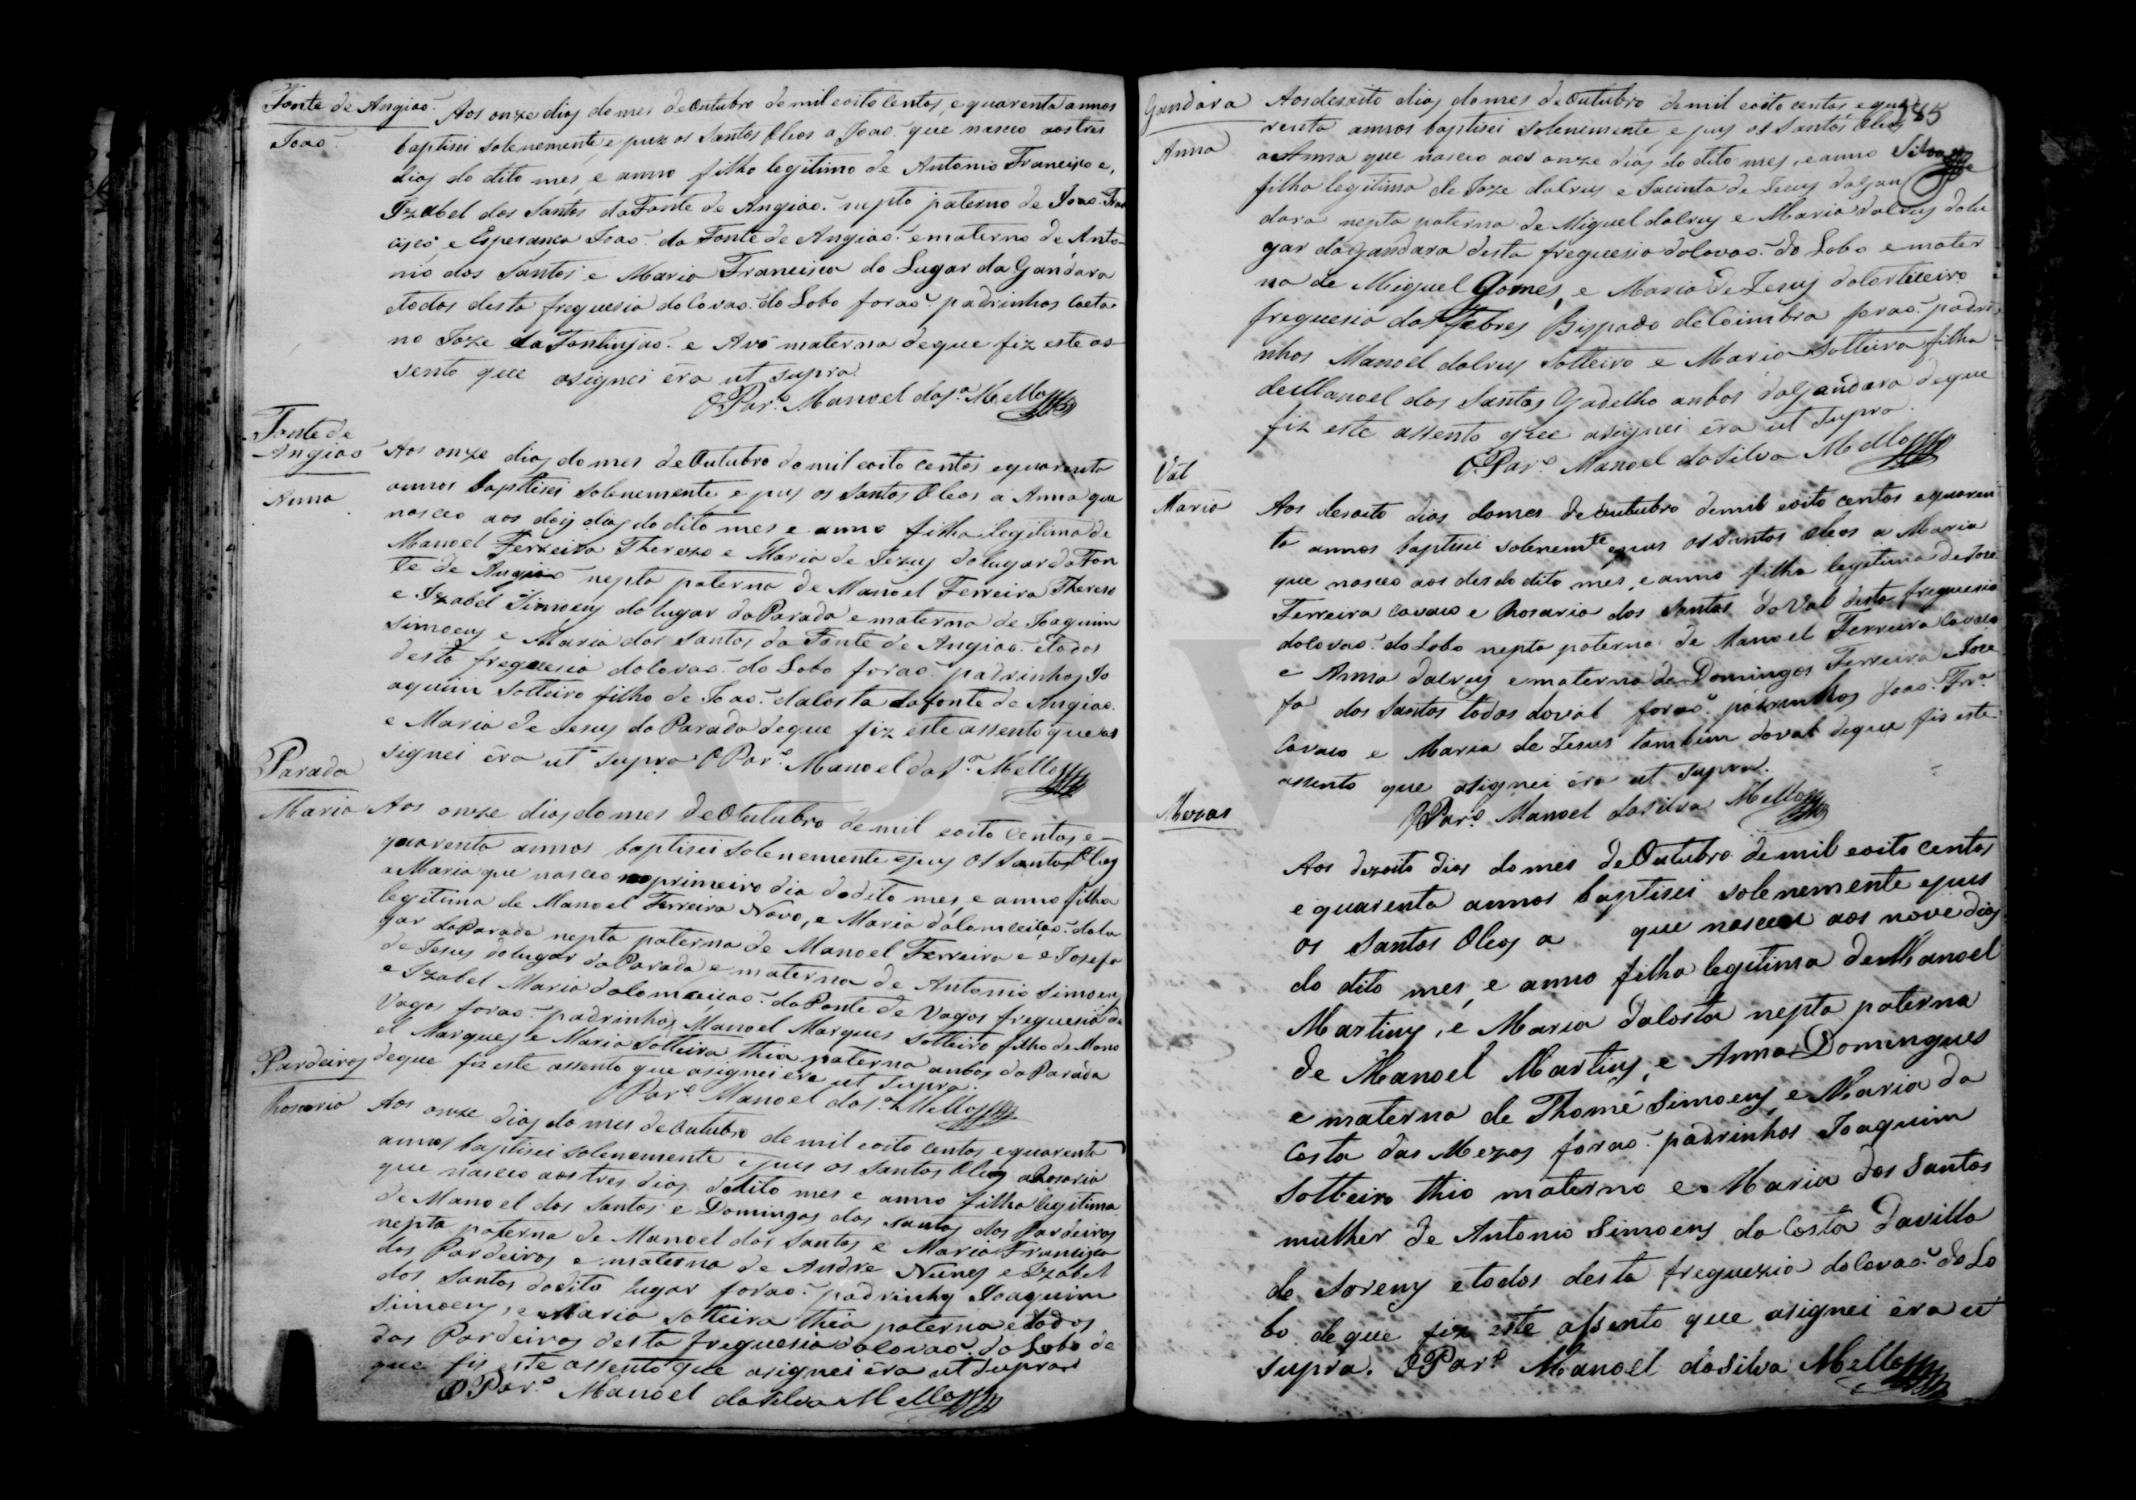 Fonte de Angiaõ.
Joaõ.
Aos onze dias do mes de Outubro de mil e oito centos, e quarenta annos
baptisei solenemente, e puz os Santos Oleos a Joaõ. que nasceo aos tres
dias do dito mes, e anno filho legitimo de Antonio Francisco e,
Izabel dos Santos da Fonte de Angiaõ. nepto paterno de Joaõ. Fran
cisco, e Esperanca Joaõ. da Fonte de Angiaõ. e materno de Anto-
nio dos Santos e Maria Francisca do Lugar da Gandara
e todos desta freguesia do Covaõ. do Lobo foraõ padrinhos Caeta
no Joze da Fontinjaõ. e Avó materna deque fiz este as-
sento que asignei êra ut supra.
O Par.º Manoel da S.ª Mello
Fonte de
Angiaõ
Anna
Aos onze dias do mes de Outubro de mil e oito centos e quarenta
annos baptisei solenemente e puz os Santos Oleos a Anna que
nasceo aos dois dias do dito mes e anno filha legitima de
Manoel Ferreira Thereso e Maria de Jezus do lugar da Fon
te de Angiaõ nepta paterna de Manoel Ferreira Thereso
e Izabel Simoens do lugar da Parada e materna de Joaquim
Simoens e Maria dos Santos da Fonte de Angiaõ. e todos
desta freguesia do Covaõ. do Lobo foraõ. padrinhos Jo
aquim Solteiro filho de Joaõ. da Costa da fonte de Angiaõ.
e Maria de Jesus da Parada deque fiz este assento que as
signei êra ut supra O Par.º Manoel da S.ª Mello
Parada
Maria
Aos onze dias do mes de Outubro de mil e oito centos e-
quarenta annos baptisei solenemente e puz os Santos Oleos
a Maria que nasceo no primeiro dia do dito mes, e anno filha
legitima de Manoel Ferreira Novo, e Maria da Comceiçaõ. do lu
gar da Parada nepta paterna de Manoel Ferreira e e Josefa
de Jesus do lugar da Parada e materna de Antonio Simoens
e Izabel Maria da Comceiçaõ. da Ponte de Vagos freguesia de
Vagos foraõ. padrinhos Manoel Marques Solteiro filho de Mano
el Marques e Maria Solteira thia paterna anbos da Parada
deque fiz este assento que asignei êra ut supra.
O Par.º Manoel da S.ª Mello
Pardeiros
Rosaria
Aos onze dias do mes de Outubro de mil e oito centos e quarenta
annos baptisei solenemente e puz os Santos Oleos a Rosaria
que nasceo aos tres dias do dito mes e anno filha legitima
de Manoel dos Santos e Domingas dos Santos dos Pardeiros
nepta paterna de Manoel dos Santos e Maria Francisca
dos Pardeiros e materna de Andre Nunes e Izabel
dos Santos do dito lugar foraõ. padrinhos Joaquim
Simoens, e Maria Solteira thia paterna e todos
dos Pardeiros desta freguesia do Covaõ. do Lobo de
que fis este assento que asignei êra ut supra
O Par.º Manoel da Silva Mello
185
Silva
Gandara
Anna
Aos desoito dias do mes de Outubro de mil e oito centos e qua
renta annos baptisei solenimente, e puz os Santos Oleos
a Anna que nasceo aos onze dias do dito mes, e anno
filha legitima de Joze da Cruz e Jacinta de Jesus da Gan
dara nepta paterna de Miguel da Cruz e Maria da Cruz do lu
gar da Gandara desta freguesia do Covaõ. do Lobo e mater
na de Miguel Gomes, e Maria de Jesus da Corticeira
freguesia das Febres Bispado de Coimbra foraõ. padri
nhos Manoel da Cruz Solteiro e Maria Solteira filha
de Manoel dos Santos Gadelho anbos da Gandara deque
fiz este assento que asignei êra ut supra.
O Par.º Manoel da Silva Mello
Val
Maria
Aos desoito dias do mes de Outubro de mil e oito centos e quaren
ta annos baptisei solenemte e puz os Santos Oleos a Maria
que nasceo aos des do dito mes, e anno filha legitima de Joze
Ferreira Cavaco e Rosaria dos Santos do Val desta freguesia
do Covaõ. do Lobo nepta paterna de Manoel Ferreira Cavaco
e Anna da Cruz e materna de Domingos Ferreira e Joze
fa dos Santos todos do Val foraõ. padrinhos Joaõ. Frr.ª
Cavaco e Maria de Jesus tambem do Val deque fis este
assento que asignei êra ut supra.
O Par.º Manoel da Silva Mello
Mezas
Aos dezoito dias do mes de Outubro de mil e oito centos
e quarenta annos baptisei solenemente e puz
os Santos Oleos a que nasceu aos nove dias
do dito mes, e anno filha legitima de Manoel
Martins, e Maria da Costa nepta paterna
de Manoel Martins, e Anna Domingues
e materna de Thomé Simoens, e Maria da
Costa das Mezas foraõ. padrinhos Joaquim
Solteiro thio materno e Maria dos Santos
mulher de Antonio Simoens da Costa da villa
de Sorens e todos desta freguezia do Covaõ. do Lo
bo deque fiz este assento que asignei êra ut
supra. O Par.º Manoel da Silva Mello